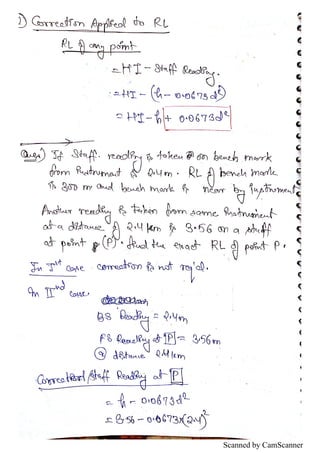 1) Correction Applied to RL
RL of any point
= HI - Staff Reading.
= HI - (h - 0.0673d²)
= HI - h + 0.0673d²
Ques) If Staff reading is taken on bench mark
from Instrument is 2.4m. RL of bench mark
is 300 m and bench mark is near by instrument
Another reading is taken from same Instrument
at a distance of 2.4 km is 3.56 on a staff
at point (P). find the exact RL of point P.
In Ist case correction is not reqd.
In IInd case,
BS Reading = 2.4m
FS Reading at P = 3.56m
@ distance 2.4 km
Correct Staff Reading at P
= h - 0.0673d²
= 3.56 - 0.0673x(2.4)²
Scanned by CamScanner